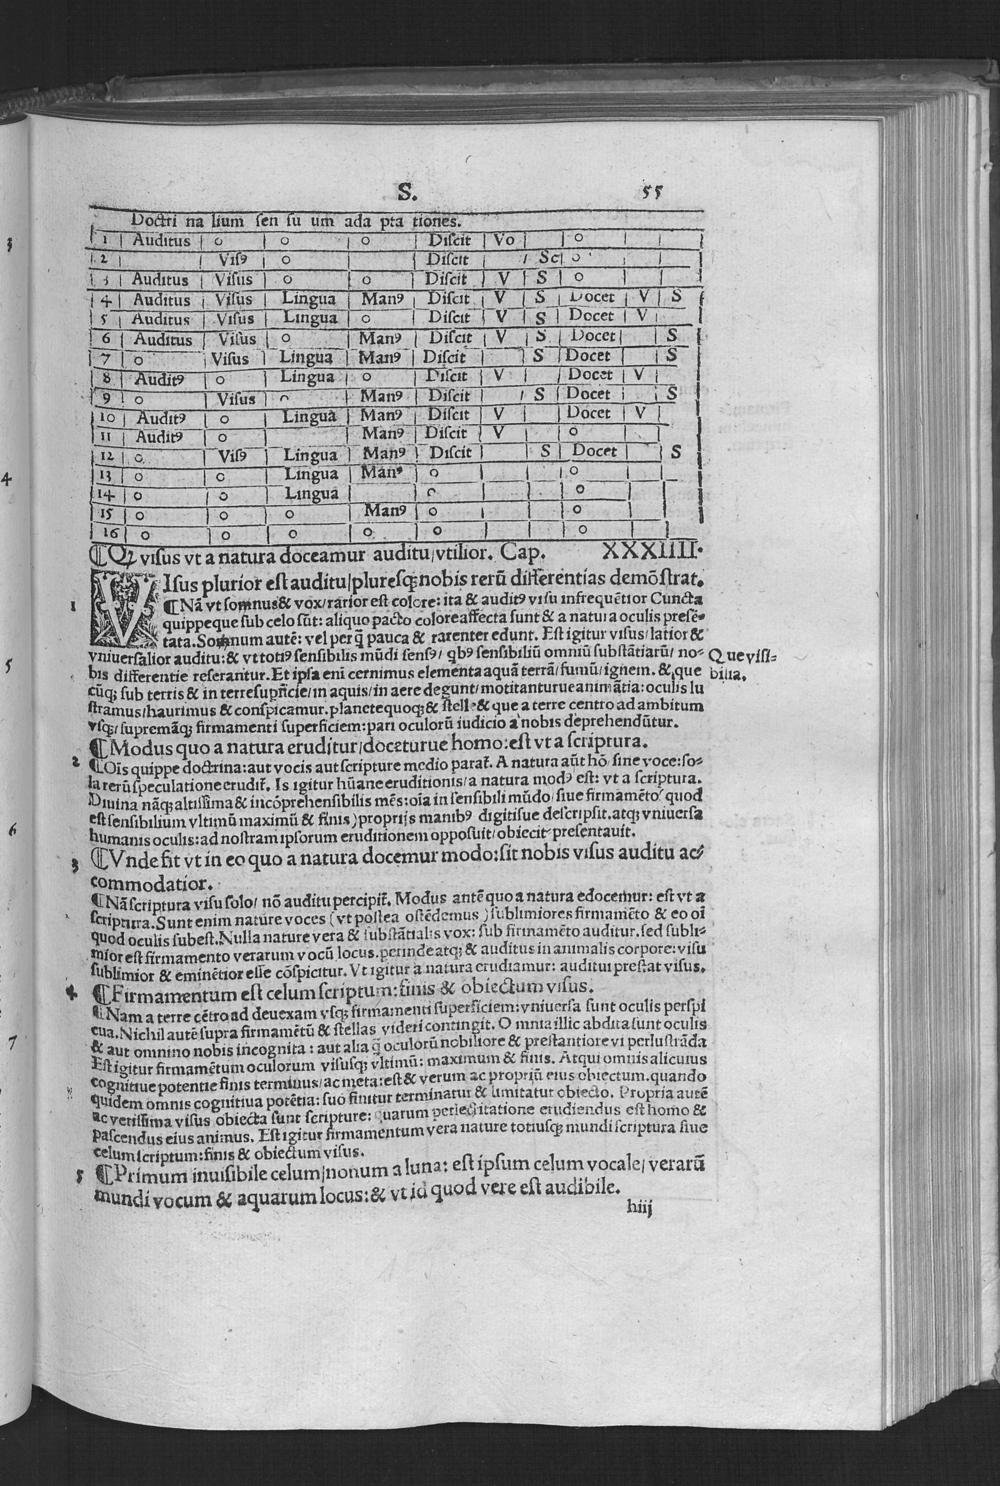 S. 55
Doctri na lium sen su um ada pta tiones.
1 | Auditus | o | o | o | Discit | Vo | | o | | |
2 | | Visꝰ | o | | Discit | | Sc | o | | |
3 | Auditus | Visus | o | o | Discit | V | S | o | | |
4 | Auditus | Visus | Lingua | Manꝰ | Discit | V | S | Docet | V | S
5 | Auditus | Visus | Lingua | o | Discit | V | S | Docet | V |
6 | Auditus | Visus | o | Manꝰ | Discit | V | S | Docet | | S
7 | o | Visus | Lingua | Manꝰ | Discit | | S | Docet | | S
8 | Auditꝰ | o | Lingua | o | Discit | V | | Docet | V |
9 | o | Visus | o | Manꝰ | Discit | | S | Docet | | S
10 | Auditꝰ | o | Lingua | Manꝰ | Discit | V | | Docet | V |
11 | Auditꝰ | o | | Manꝰ | Discit | V | | o | | |
12 | o | Visꝰ | Lingua | Manꝰ | Discit | | S | Docet | | S
13 | o | o | Lingua | Manꝰ | o | | | o | | |
14 | o | o | Lingua | | o | | | o | | |
15 | o | o | o | Manꝰ | o | | | o | | |
16 | o | o | o | o | o | | | o | | |
¶Qꝫ visus vt a natura doceamur auditu/vtilior. Cap. XXXIIII.
VIsus plurior est auditu/pluresqꝫ nobis rerū differentias demōstrat.
1 ¶Nā vt somnus & vox/rarior est colore: ita & auditꝰ visu infrequētior Cuncta
quippeque sub celo sūt: aliquo pacto colore affecta sunt & a natura oculis presē-
tata. Somnum autē: vel per ꝗ̄ pauca & rarenter edunt. Est igitur visus/latior &
vniuersalior auditu: & vt totiꝰ sensibilis mūdi sensꝰ/ qbꝰ sensibiliū omniū substātiarū/ no-
bis differentie reserantur. Et ipsa enī cernimus elementa aquā terrā/fumū/ignem. & que
Que visi-
bilia.
cūqꝫ sub terris & in terre supñcie/in aquis/in aere degunt/motitanturue animātia: oculis lu
stramus/haurimus & conspicamur. planete quoqꝫ & stelle & que a terre centro ad ambitum
vsqꝫ/supremāqꝫ firmamenti superficiem: pari oculorū iudicio a nobis deprehendūtur.
¶Modus quo a natura eruditur/doceturue homo: est vt a scriptura.
2 ¶Oīs quippe doctrina: aut vocis aut scripture medio parat̄. A natura aūt hō sine voce: so-
la rerū speculatione erudit̄. Is igitur hūane eruditionis/a natura modꝰ est: vt a scriptura.
Diuina nāqꝫ altissima & incōprehensibilis mēs: oīa in sensibili mūdo/siue firmamēto/ quod
est sensibilium vltimū maximū & finis) proprijs manibꝰ digitisue descripsit. atqꝫ vniuersa
humanis oculis: ad nostram ipsorum eruditionem opposuit/obiecit presentauit.
3 ¶Vnde fit vt in eo quo a natura docemur modo: sit nobis visus auditu ac-
commodatior.
¶Nā scriptura visu solo/ nō auditu percipit̄. Modus antē quo a natura edocemur: est vt a
scriptura. Sunt enim nature voces (vt postea ostēdemus) sublimiores firmamēto & eo oī
quod oculis subest. Nulla nature vera & substātialis vox: sub firmamēto auditur. sed subli-
mior est firmamento verarum vocū locus. perinde atqꝫ & auditus in animalis corpore: visu
sublimior & eminētior esse cōspicitur. Vt igitur a natura erudiamur: auditui prestat visus.
4 ¶Firmamentum est celum scriptum: finis & obiectum visus.
¶Nam a terre cētro ad deuexam vsqꝫ firmamenti superficiem: vniuersa sunt oculis perspi
cua. Nichil autē supra firmamētū & stellas videri contingit. Omnia illic abdita sunt oculis
& aut omnino nobis incognita: aut alia ꝗ̄ oculorū nobiliore & prestantiore vi perlustrāda
Est igitur firmamētum oculorum visusqꝫ vltimū: maximum & finis. Atqui omnis alicuius
cognitiue potentie finis terminus/ac meta: est & verum ac propriū eius obiectum. quando
quidem omnis cognitiua potētia: suo finitur terminatur & limitatur obiecto. Propria autē
ac verissima visus obiecta sunt scripture: quarum perlectitatione erudiendus est homo &
pascendus eius animus. Est igitur firmamentum vera nature totiusqꝫ mundi scriptura siue
celum scriptum: finis & obiectum visus.
5 ¶Primum inuisibile celum/nonum a luna: est ipsum celum vocale/ verarū
mundi vocum & aquarum locus: & vt id quod vere est audibile.
hiij
3
4
5
6
7